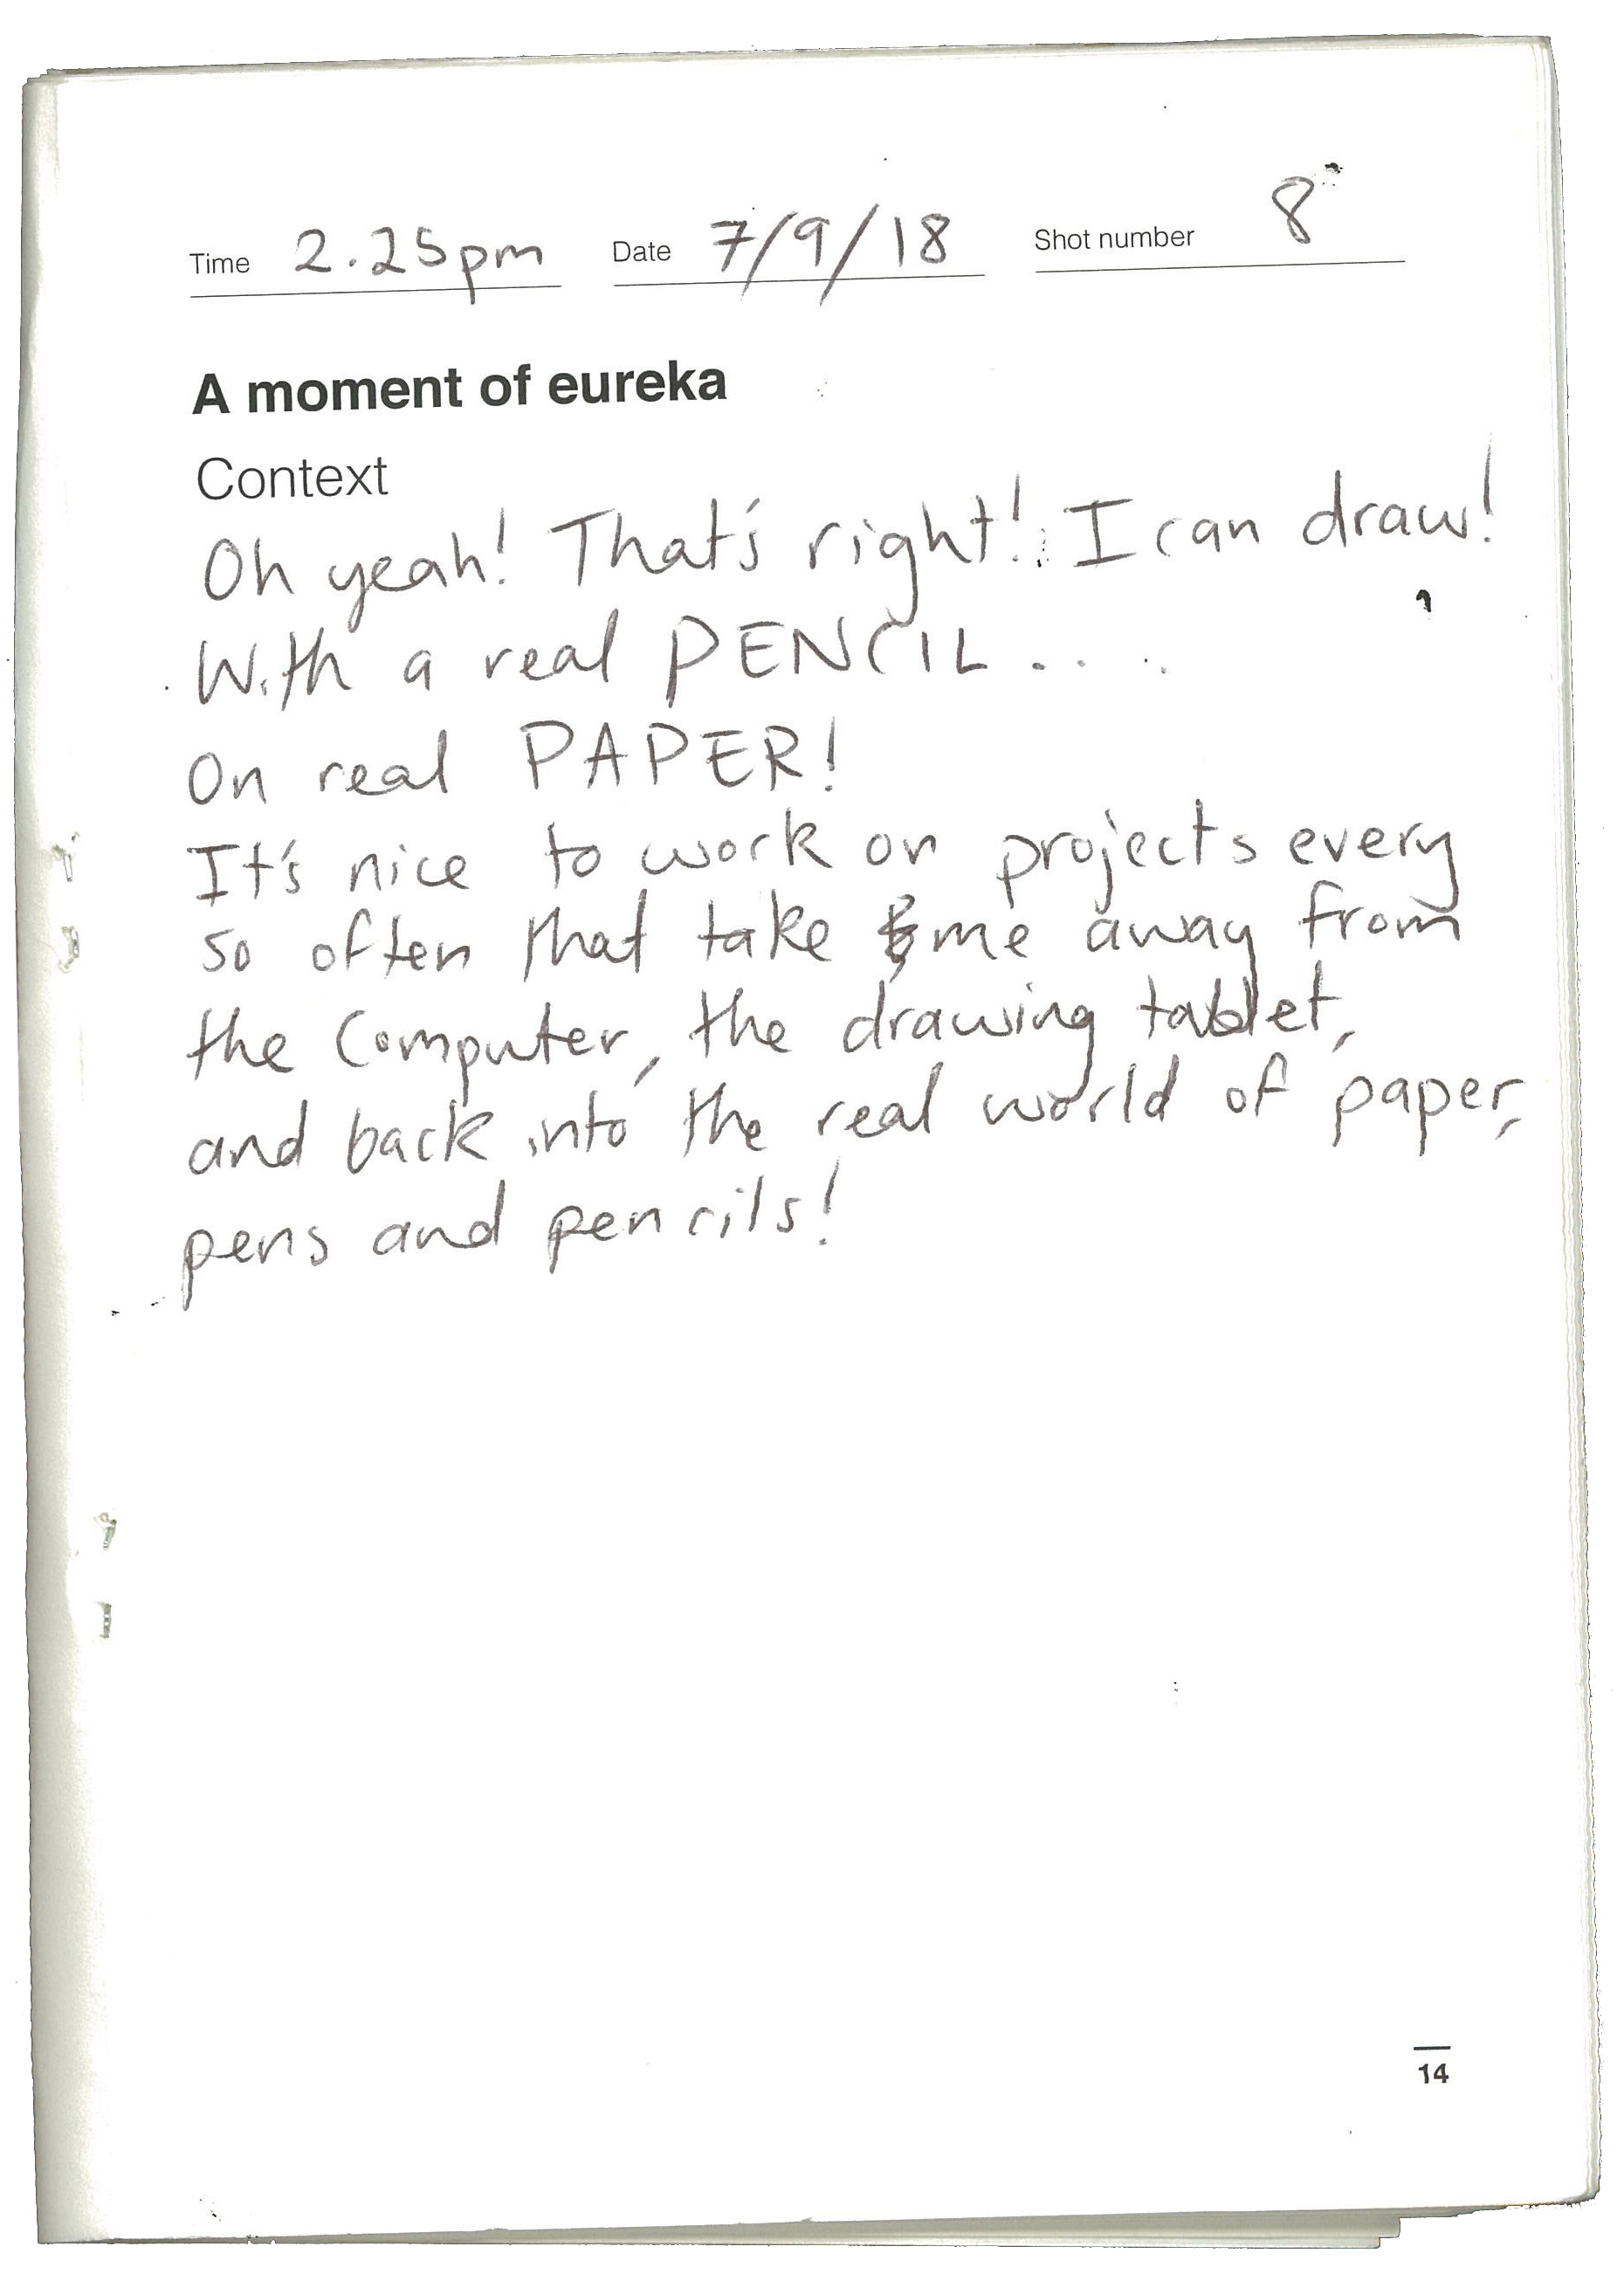 Time 2.25pm Date 7/9/18 Shot number 8
A moment of eureka
Context
Oh yeah! That's right! I can draw!
With a real PENCIL....
On real PAPER!
It's nice to work on projects every
so often that take me away from
the computer, the drawing tablet,
and back into the real world of paper,
pens and pencils!
14